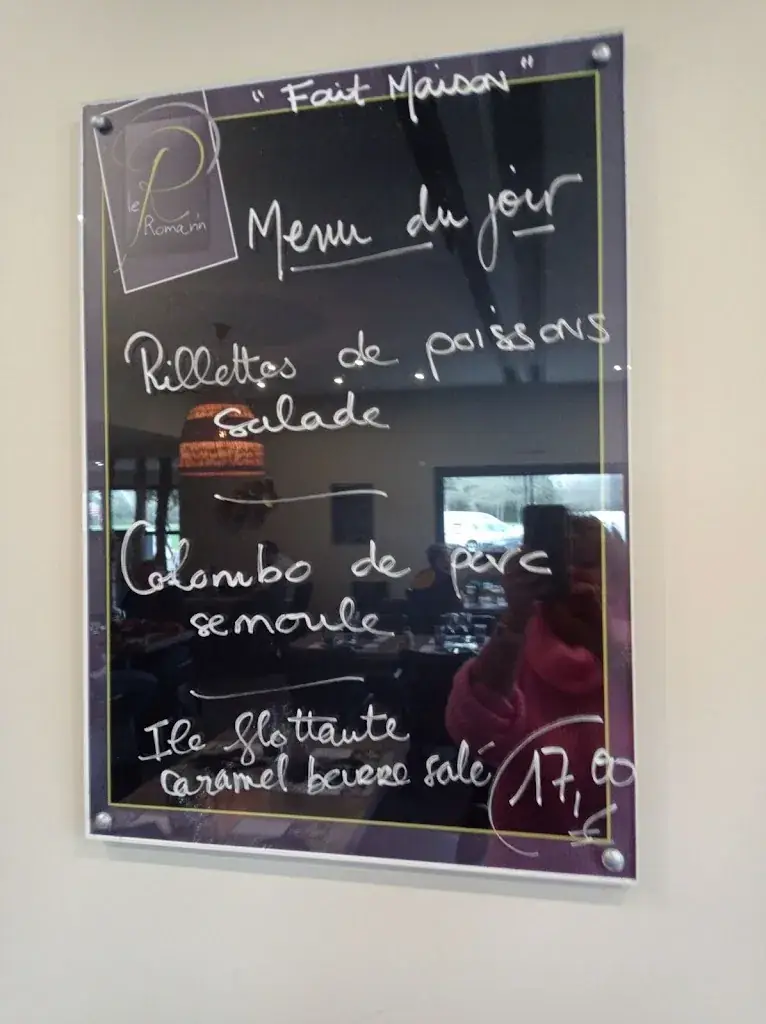 "Fait Maison"
le Romarin
Menu du jour
Rillettes de poissons
salade
Colombo de porc
semoule
Ile flottante
caramel beurre salé
17,00
€